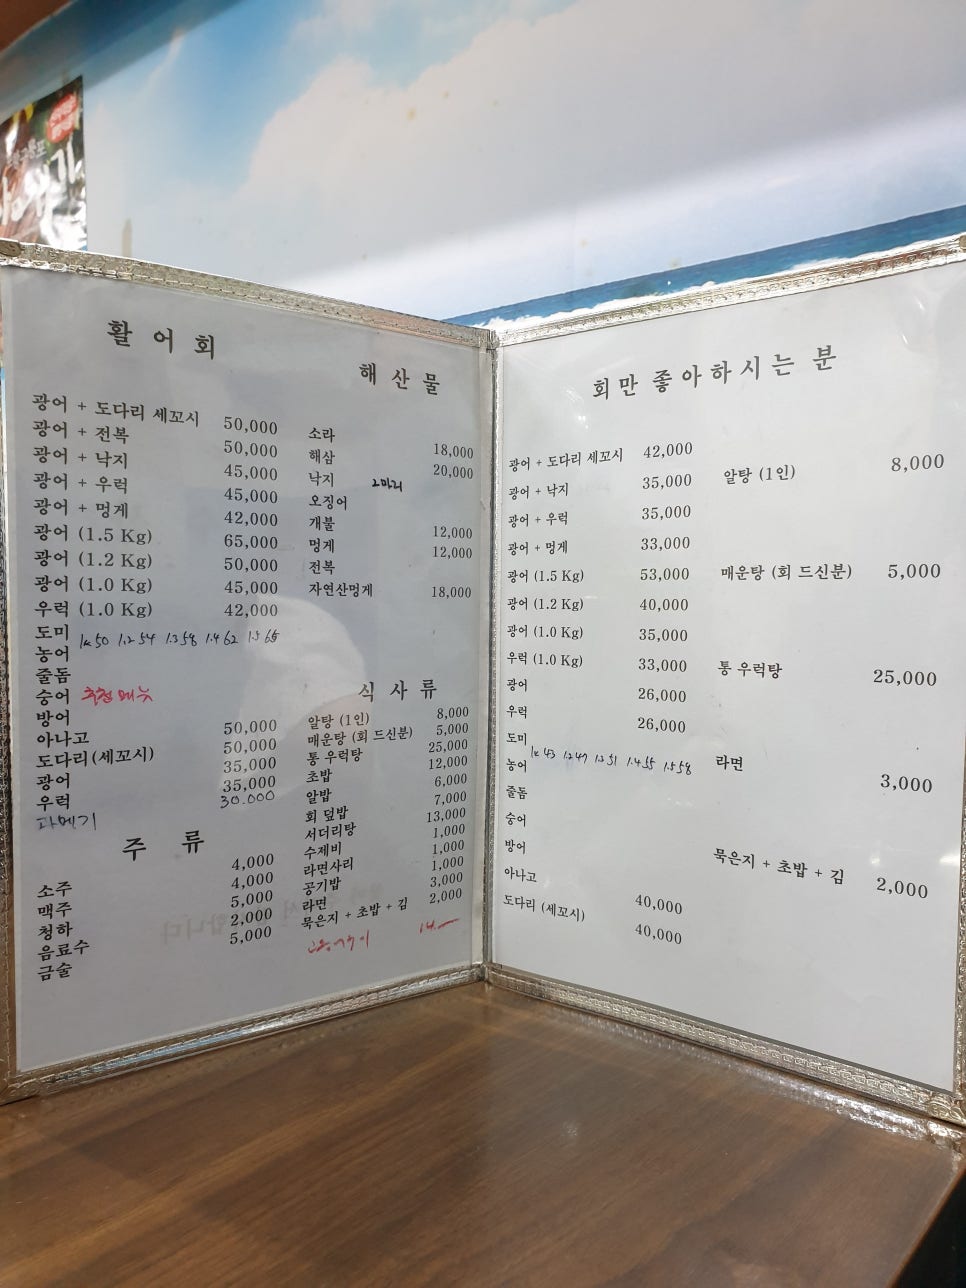 활 어 회
광어 + 도다리 세꼬시 50,000
광어 + 전복 50,000
광어 + 낙지 45,000
광어 + 우럭 45,000
광어 + 멍게 42,000
광어 (1.5 Kg) 65,000
광어 (1.2 Kg) 50,000
광어 (1.0 Kg) 45,000
우럭 (1.0 Kg) 42,000
도미 1k 50 1.2 54 1.3 58 1.4 62 1.5 65
농어
줄돔
숭어 추천메뉴
방어
아나고 50,000
도다리(세꼬시) 50,000
광어 35,000
우럭 35,000
과메기 30.000
주 류
소주 4,000
맥주 4,000
청하 5,000
음료수 2,000
금술 5,000
해 산 물
소라 18,000
해삼 20,000
낙지 2마리
오징어
개불 12,000
멍게 12,000
전복
자연산멍게 18,000
식 사 류
알탕 (1인) 8,000
매운탕 (회 드신분) 5,000
통 우럭탕 25,000
초밥 12,000
알밥 6,000
회 덮밥 7,000
서더리탕 13,000
수제비 1,000
라면사리 1,000
공기밥 1,000
라면 3,000
묵은지 + 초밥 + 김 2,000
회만 좋아하시는 분
광어 + 도다리 세꼬시 42,000
광어 + 낙지 35,000
광어 + 우럭 35,000
광어 + 멍게 33,000
광어 (1.5 Kg) 53,000
광어 (1.2 Kg) 40,000
광어 (1.0 Kg) 35,000
우럭 (1.0 Kg) 33,000
광어 26,000
우럭 26,000
도미
농어 1k 43 1.2 47 1.3 51 1.4 55 1.5 58
줄돔
숭어
방어
아나고 40,000
도다리 (세꼬시) 40,000
알탕 (1인) 8,000
매운탕 (회 드신분) 5,000
통 우럭탕 25,000
라면 3,000
묵은지 + 초밥 + 김 2,000